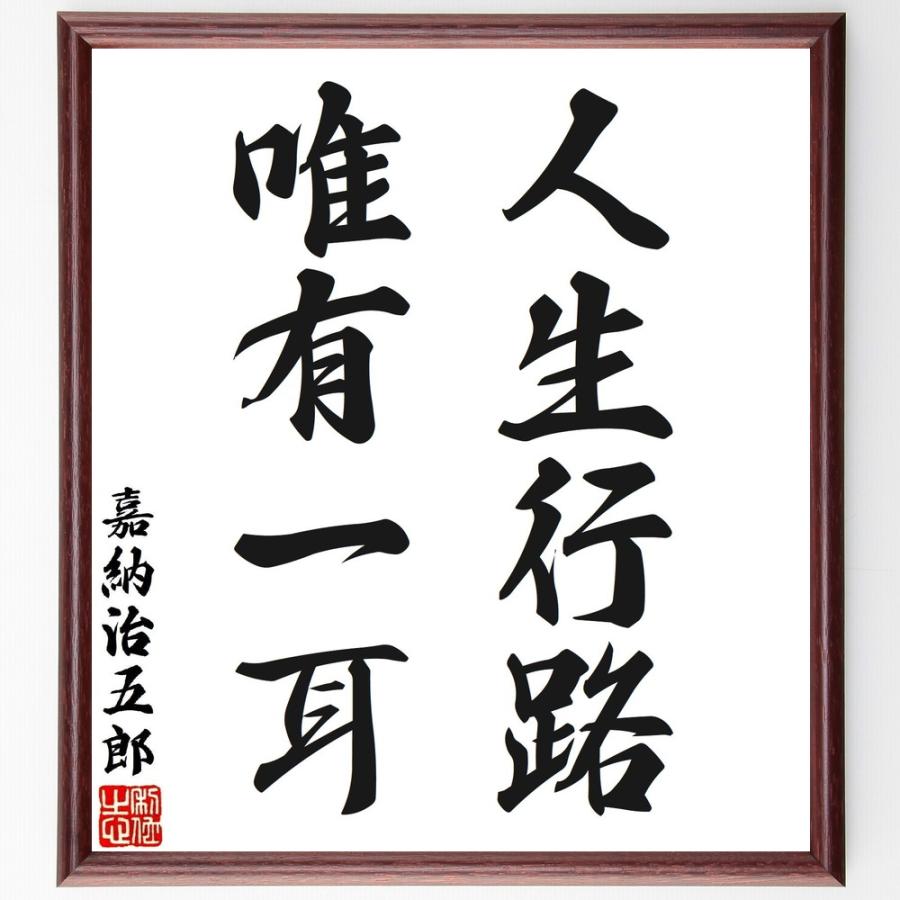 人生行路
唯有一耳
嘉納治五郎